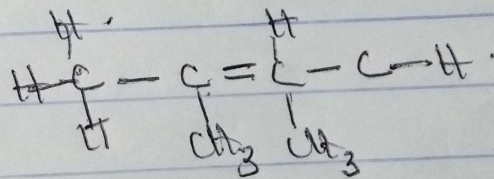 H H
H-C-C=C-C-H
H CH3 CH3